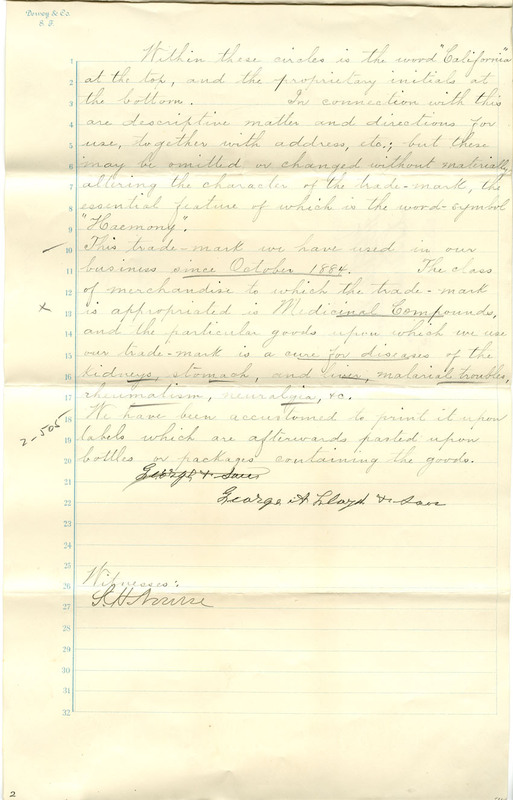 Dewey & Co.
S. F.
1 Within these circles is the word "California"
2 at the top, and the proprietary initials at
3 the bottom. In connection with this
4 are descriptive matter and directions for
5 use, together with address, etc.; but these
6 may be omitted or changed without materially
7 altering the character of the trade-mark, the
8 essential feature of which is the word-symbol
9 "Haemony".
10 This trade-mark we have used in our
11 business since October 1884. The class
12 of merchandise to which the trade-mark
x 13 is appropriated is Medicinal Compounds,
14 and the particular goods upon which we use
15 our trade-mark is a cure for diseases of the
16 kidneys, stomach, and liver, malarial troubles,
17 rheumatism, neuralgia, &c.
2-505 18 We have been accustomed to print it upon
19 labels which are afterwards pasted upon
20 bottles or packages containing the goods.
21 George & Son
22 George A Lloyd & Son
23
24
25
26 Witnesses:
27 S. H. Nourse
28
29
30
31
32
2